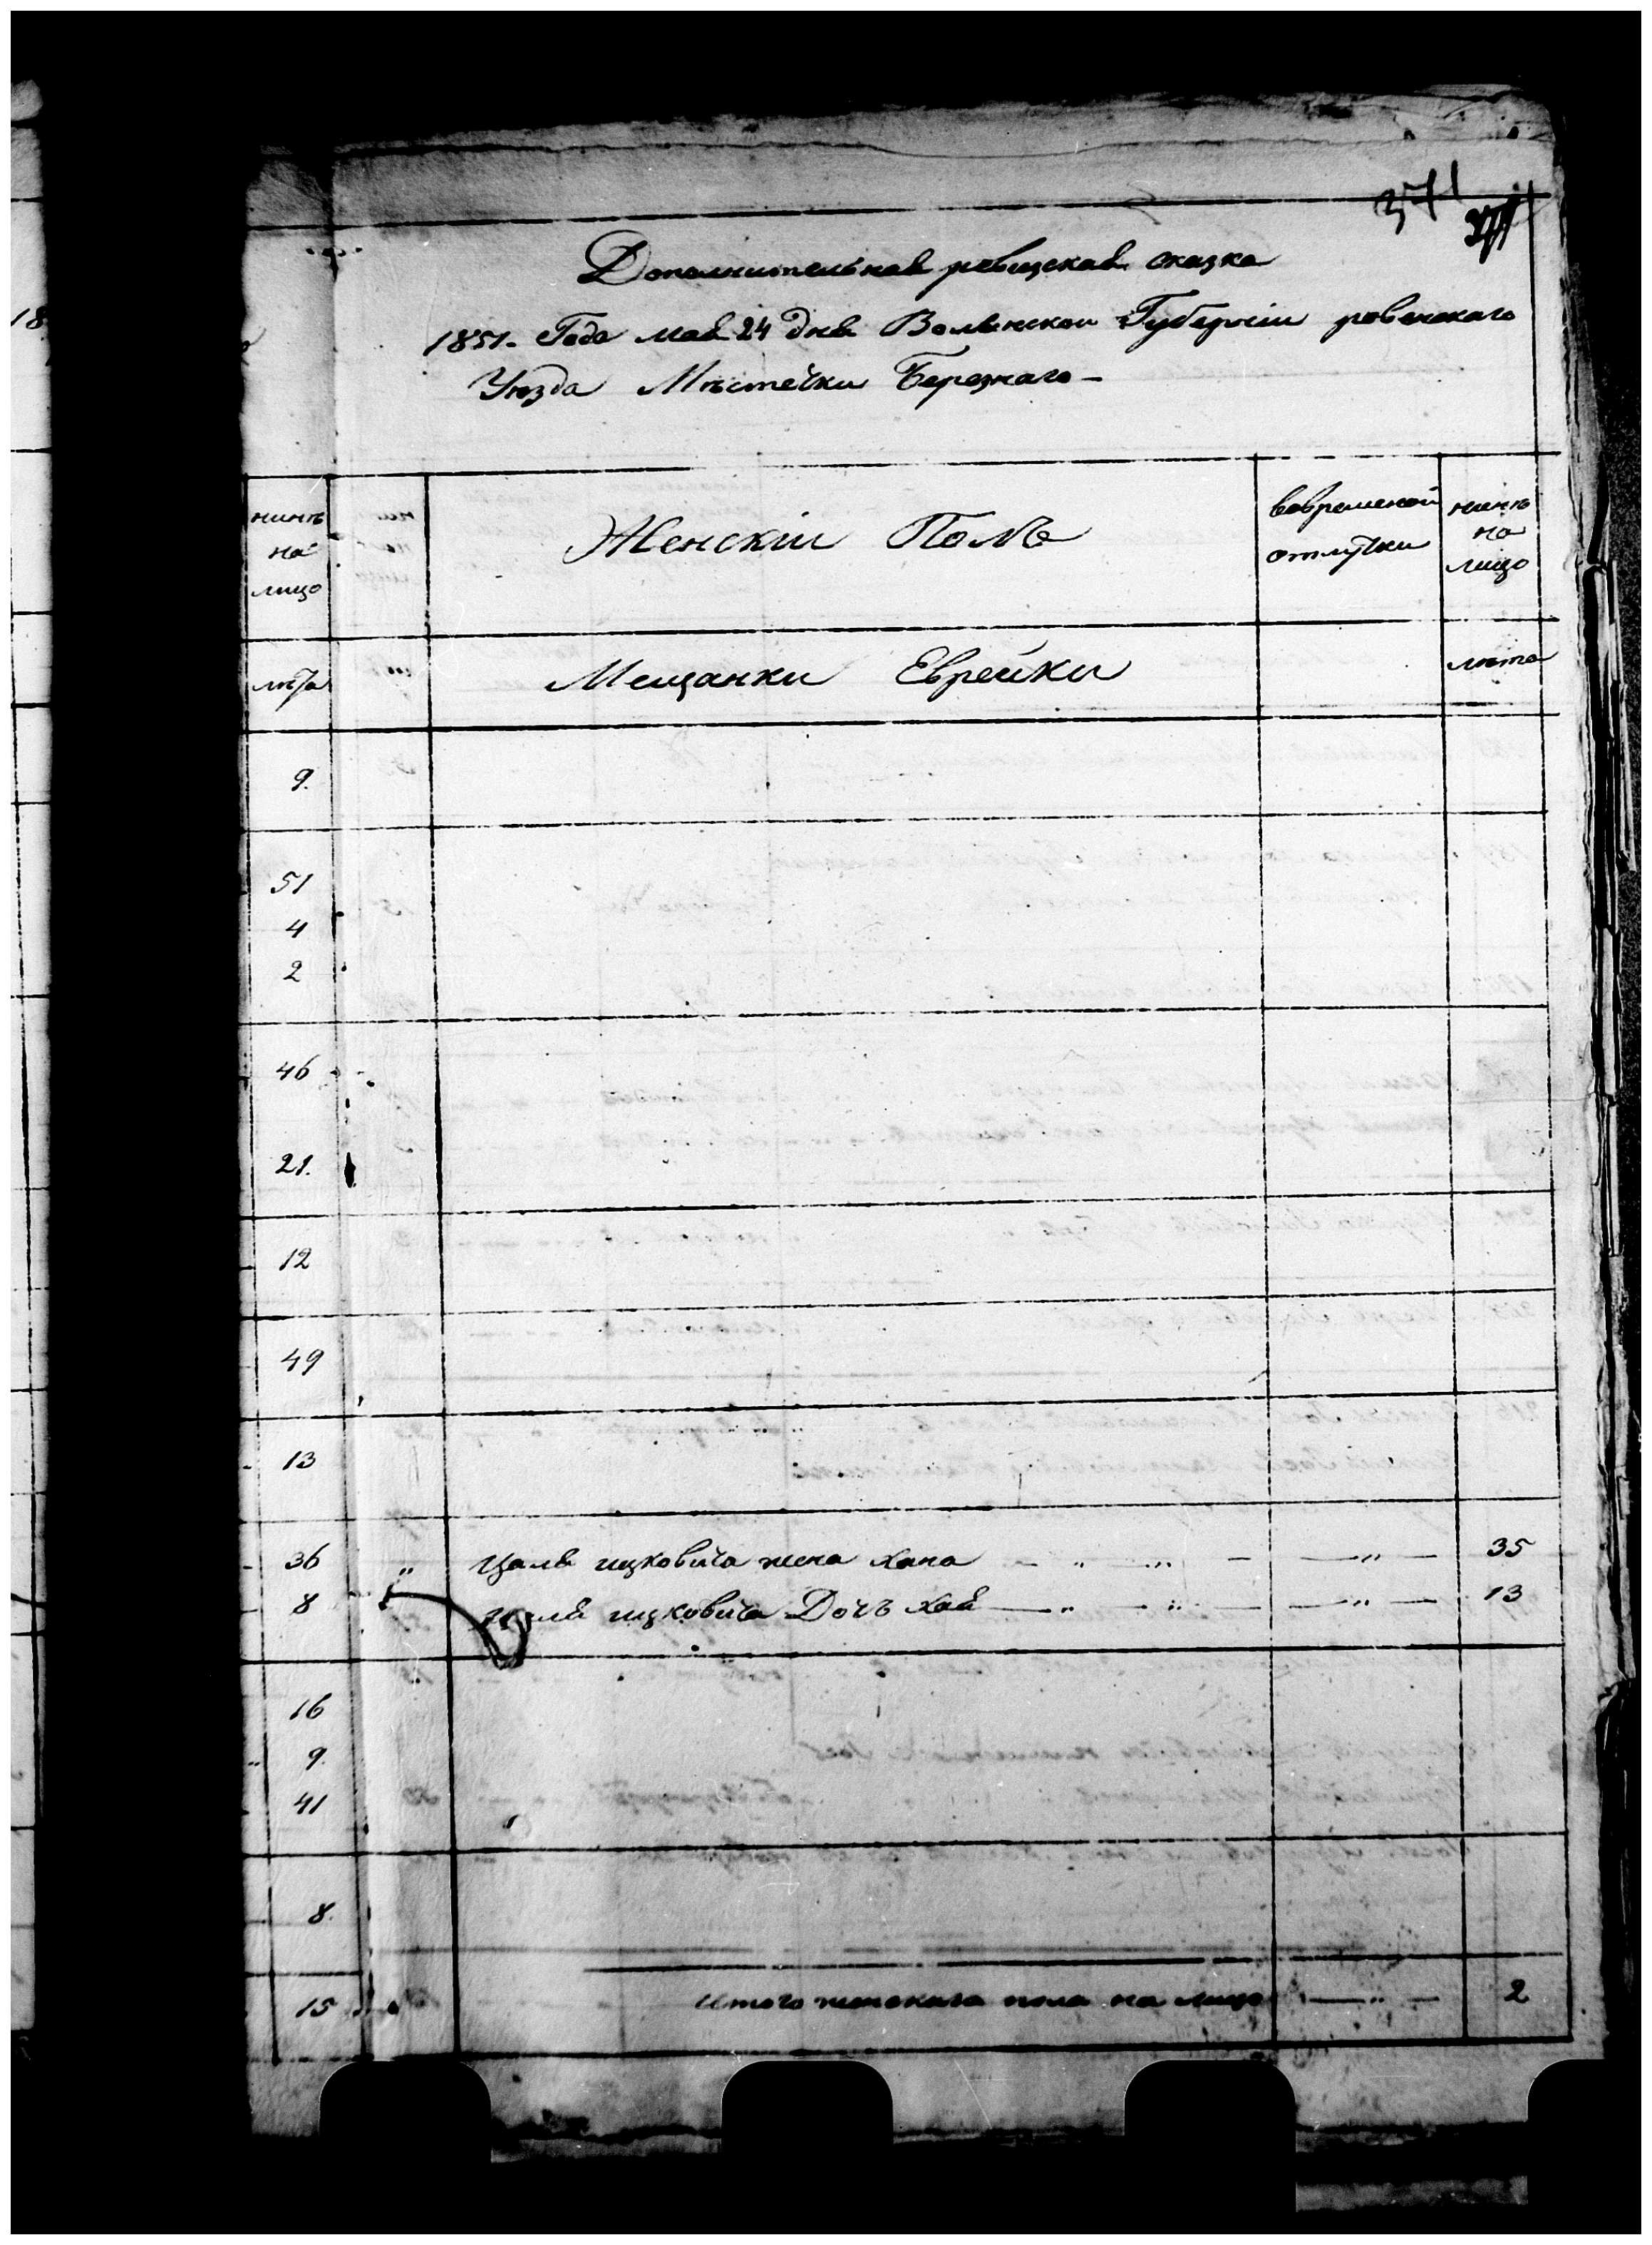 371
Дополнительная ревизская сказка
1851. Года мая 24 дня Волынскои Губернiи ровенского
Уѣзда Мѣстечки Березнаго –
нинѣ на лицо
Женскiи Полъ
вовременой отлучки
нинѣ на лицо
лѣта
Мещанки Еврейки
лѣта
9.
51
4
2
46
21.
12
49
13
36 " Цаля ицковича жена хана — " — " — — " — 35
8 ицковича Дочъ хая — " — " — — " — 13
16
9.
41
8.
15 Итого женскаго пола на лицо — " — 2
18